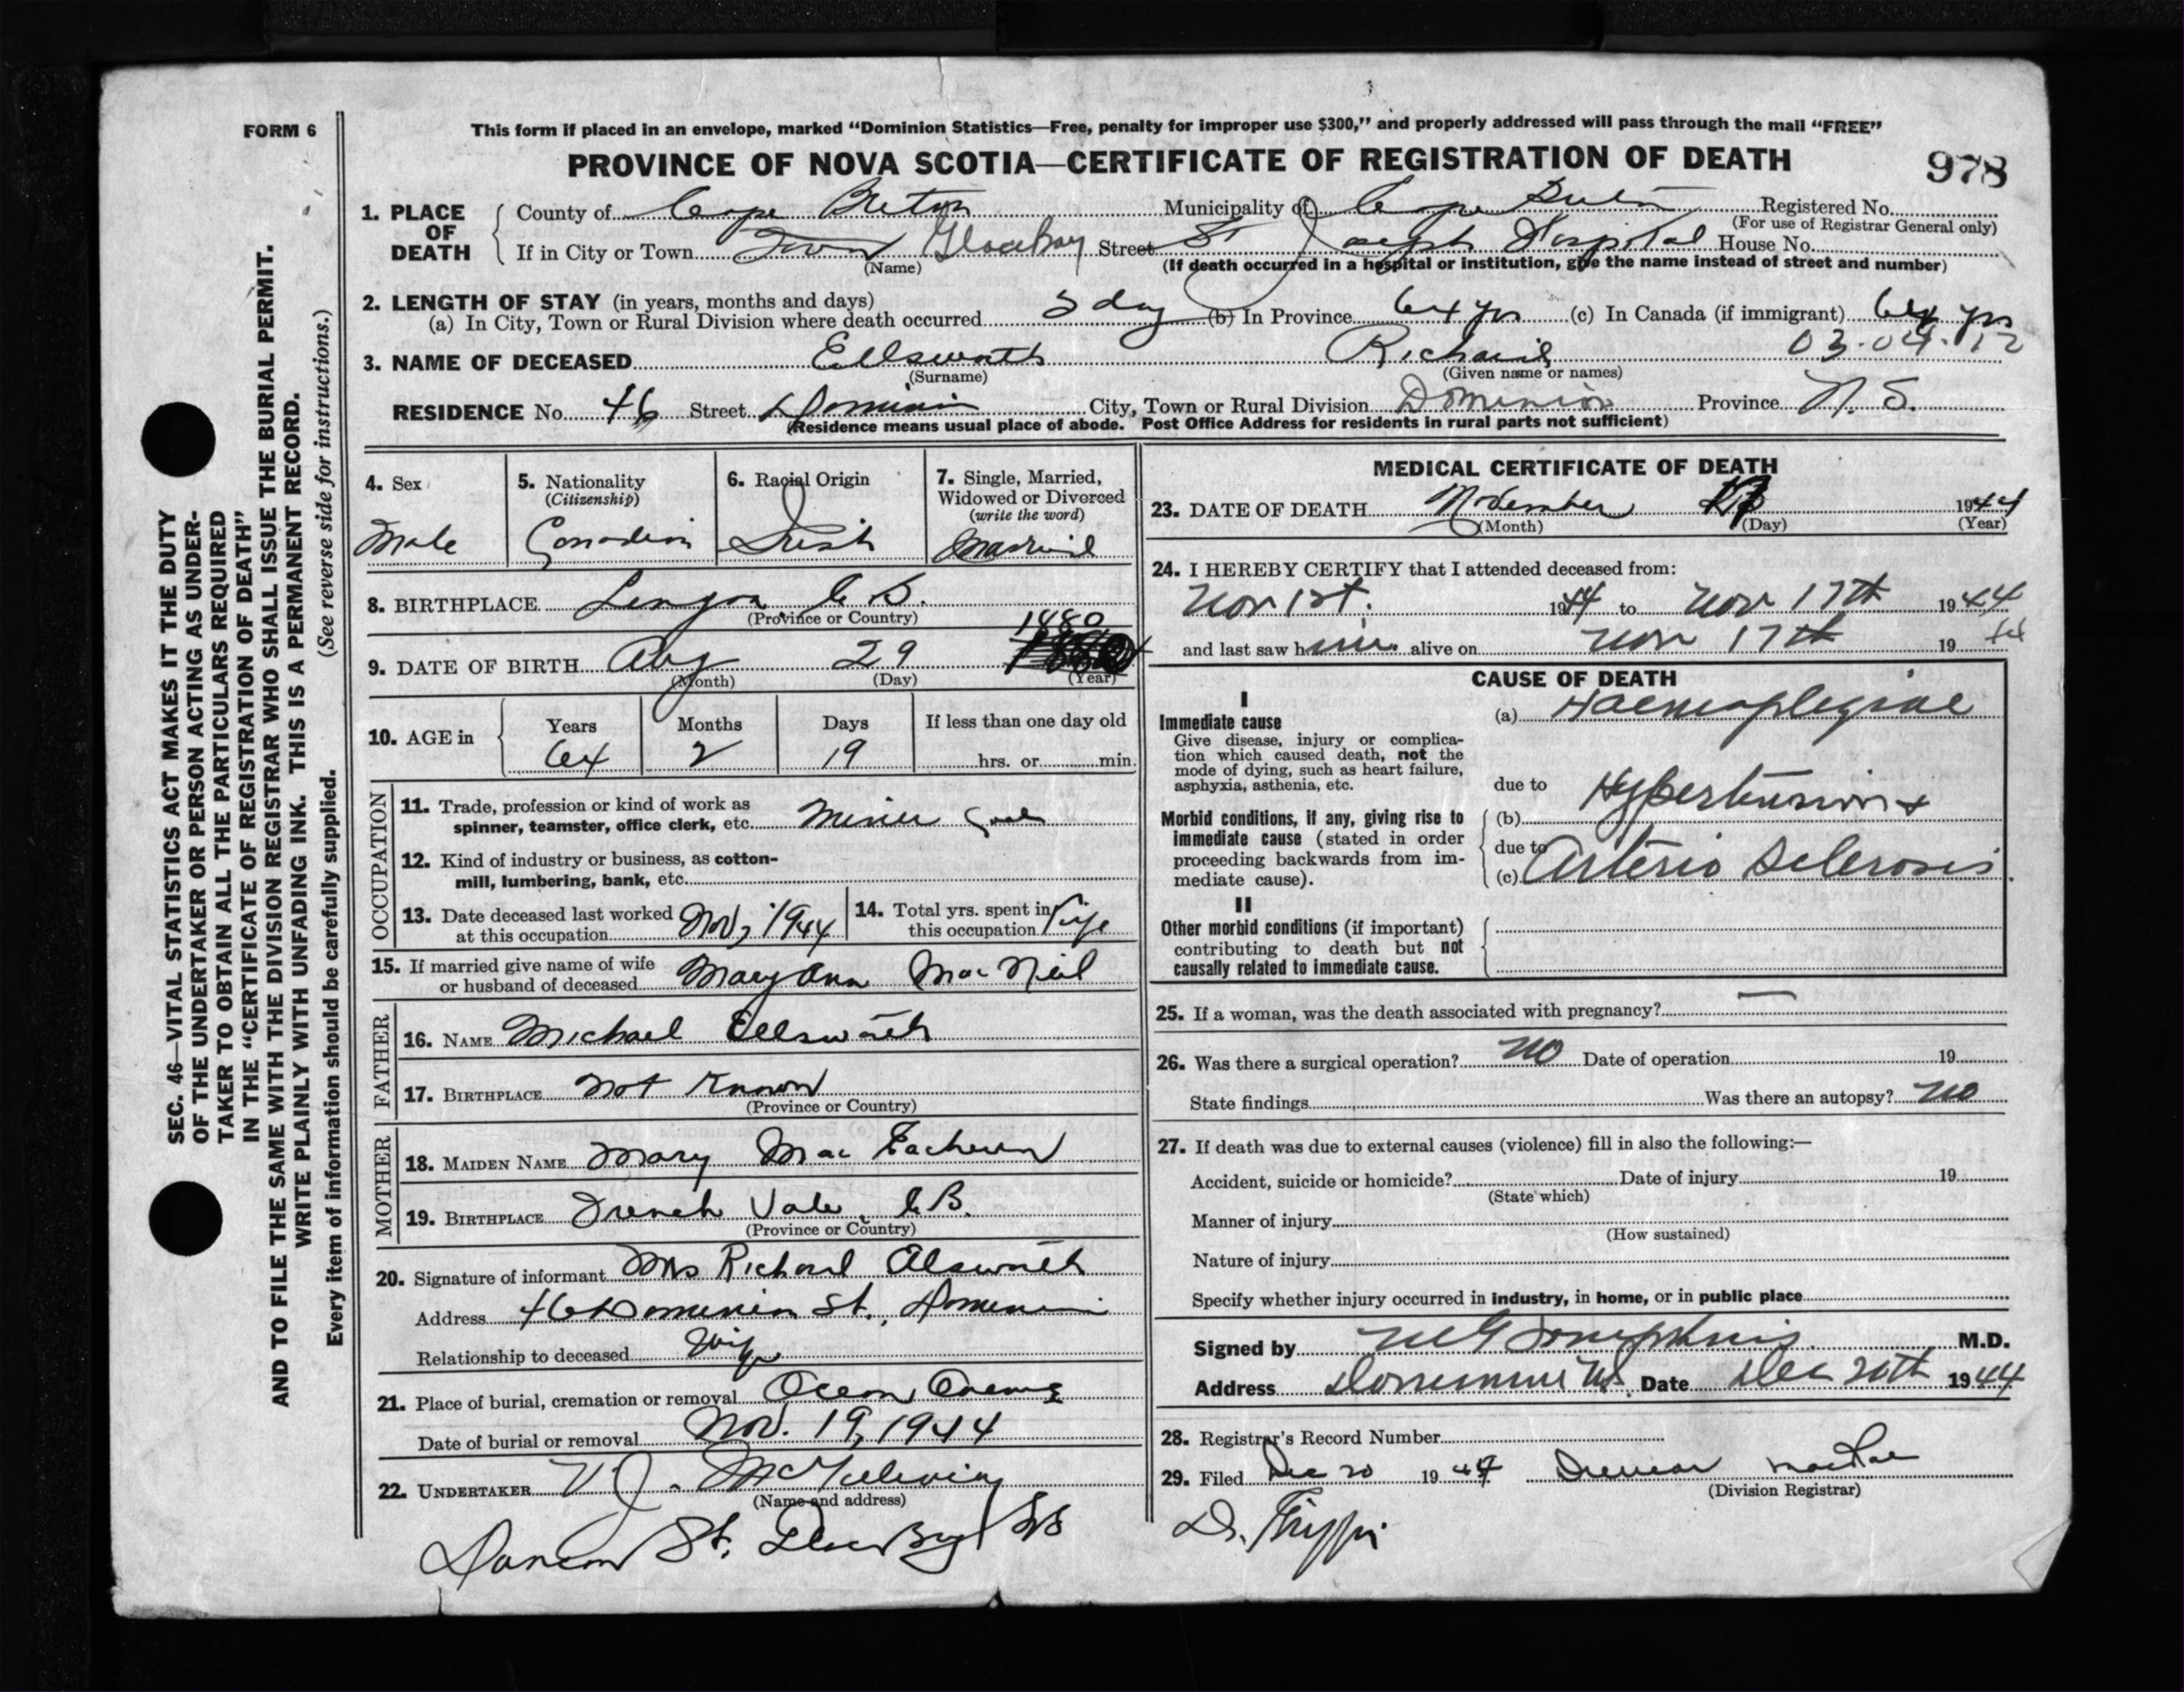 FORM 6
This form if placed in an envelope, marked “Dominion Statistics—Free, penalty for improper use $300,” and properly addressed will pass through the mail “FREE”
PROVINCE OF NOVA SCOTIA—CERTIFICATE OF REGISTRATION OF DEATH
978
SEC. 46—VITAL STATISTICS ACT MAKES IT THE DUTY
OF THE UNDERTAKER OR PERSON ACTING AS UNDER-
TAKER TO OBTAIN ALL THE PARTICULARS REQUIRED
IN THE “CERTIFICATE OF REGISTRATION OF DEATH”
AND TO FILE THE SAME WITH THE DIVISION REGISTRAR WHO SHALL ISSUE THE BURIAL PERMIT.
WRITE PLAINLY WITH UNFADING INK. THIS IS A PERMANENT RECORD.
Every item of information should be carefully supplied. (See reverse side for instructions.)
1. PLACE OF DEATH
County of Cape Breton Municipality of Cape Breton Registered No.
(For use of Registrar General only)
If in City or Town Town Glace Bay Street St Joseph Hospital House No.
(Name) (If death occurred in a hospital or institution, give the name instead of street and number)
2. LENGTH OF STAY (in years, months and days)
(a) In City, Town or Rural Division where death occurred 5 day (b) In Province 64 yrs (c) In Canada (if immigrant) 64 yrs
3. NAME OF DECEASED Ellsworth Richard 03-04-12
(Surname) (Given name or names)
RESIDENCE No. 46 Street Dominion City, Town or Rural Division Dominion Province N. S.
(Residence means usual place of abode. Post Office Address for residents in rural parts not sufficient)
4. Sex
Male
5. Nationality
(Citizenship)
Canadian
6. Racial Origin
Irish
7. Single, Married,
Widowed or Divorced
(write the word)
Married
8. BIRTHPLACE Lingan C. B.
(Province or Country)
1880
9. DATE OF BIRTH Aug 29
(Month) (Day) (Year)
10. AGE in
Years Months Days If less than one day old
64 2 19 hrs. or min.
OCCUPATION
11. Trade, profession or kind of work as
spinner, teamster, office clerk, etc. Miner Coal
12. Kind of industry or business, as cotton-
mill, lumbering, bank, etc.
13. Date deceased last worked
at this occupation Nov, 1944
14. Total yrs. spent in
this occupation Life
15. If married give name of wife
or husband of deceased Mary Ann MacNeil
FATHER
16. NAME Michael Ellsworth
17. BIRTHPLACE Not Known
(Province or Country)
MOTHER
18. MAIDEN NAME Mary Mac Eachern
19. BIRTHPLACE French Vale, C.B.
(Province or Country)
20. Signature of informant Mrs Richard Alsworth
Address 46 Dominion St., Dominion
Relationship to deceased Wife
21. Place of burial, cremation or removal Ocean
Date of burial or removal Nov. 19, 1944
22. UNDERTAKER
(Name and address)
St. Glace Bay NS
MEDICAL CERTIFICATE OF DEATH
23. DATE OF DEATH November 17 1944
(Month) (Day) (Year)
24. I HEREBY CERTIFY that I attended deceased from:
Nov 1st. 1944 to Nov 17th 1944
and last saw him alive on Nov 17th 19 44
CAUSE OF DEATH
I
Immediate cause
Give disease, injury or complica-
tion which caused death, not the
mode of dying, such as heart failure,
asphyxia, asthenia, etc.
(a) Haemaplegiae
due to
Morbid conditions, if any, giving rise to
immediate cause (stated in order
proceeding backwards from im-
mediate cause).
(b) Hypertension +
due to
(c) Arterio Sclerosis
II
Other morbid conditions (if important)
contributing to death but not
causally related to immediate cause.
25. If a woman, was the death associated with pregnancy? —
26. Was there a surgical operation? No Date of operation 19
State findings Was there an autopsy? No
27. If death was due to external causes (violence) fill in also the following:—
Accident, suicide or homicide? Date of injury 19
(State which)
Manner of injury
(How sustained)
Nature of injury
Specify whether injury occurred in industry, in home, or in public place
Signed by M.D.
Address Dominion NS. Date Dec 20th 1944
28. Registrar's Record Number
29. Filed Dec 20 1944 Duncan MacRae
(Division Registrar)
Dr.